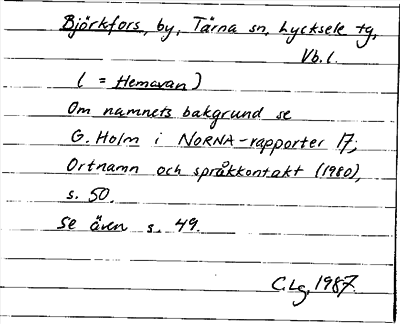 Björkfors, by, Tärna sn, Lycksele tg,
Vb. l.
( = Hemavan )
Om namnets bakgrund se
G. Holm i NORNA-rapporter 17;
Ortnamn och språkkontakt (1980),
s. 50.
Se även s. 49.
C. Lg, 1987.